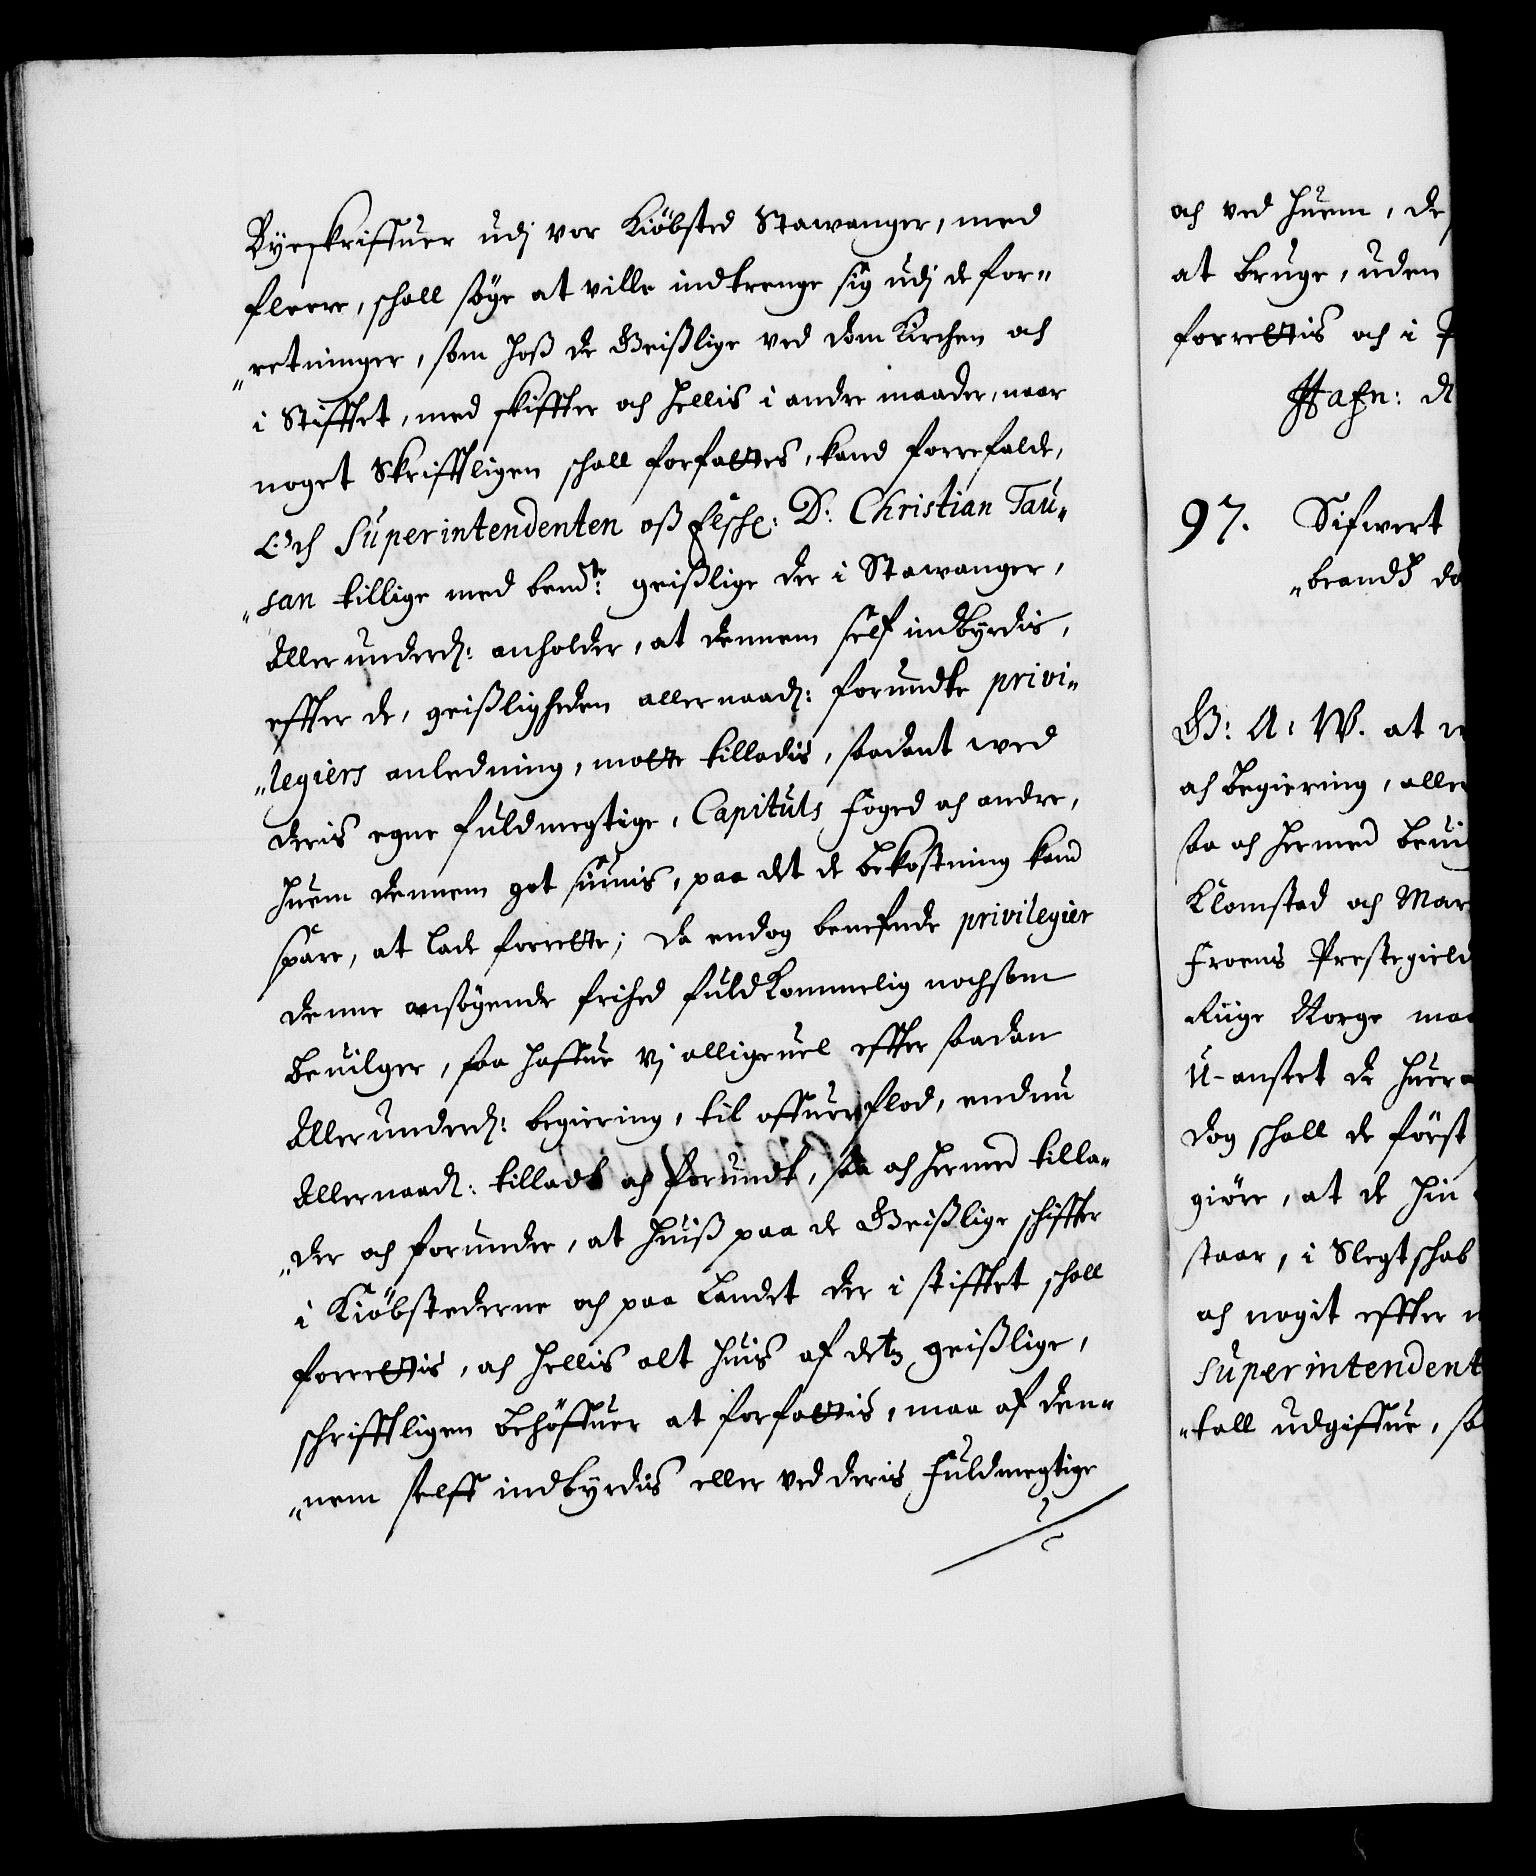 Byeskriffuer udj vor Kiöbsted Stawanger, med
fleere, schall söge at ville indtrenge sig udj de for„
„retninger, som hoß de Geistlige ved dom Kirchen och
i Stifftet, med skiffter och hellis i andre maader, naar
noget Skrifftligen schall forfattes, kand forrefalde,
Och Superintendenten oß Elschl: D: Christian Tau„
„san tillige med bemdte: geistlige der i Stawanger,
Allerunderd: anholder, at dennem self indbyrdis,
effter de, geistligheden allernaad: forundte privi„
„legiers anledning, motte tilladis, saadant wed
deris egne fuldmegtige, Capituls foged och andre,
huem dennem got siunis, paa det de bekostning kand
spare, at lade forrette; Da endog benefnde privilegier
denne ansögende frihed fuldkommelig nochsom
beuilger, saa haffue Vj alligeuel effter saadan
Allerunderd: begiering, til offuerflod, endnu
Allernaad: tilladt och forundt, saa och hermed tilla„
„der och forunder, at huiß paa de Geistlige schiffter
i Kiöbstederne och paa Landet der i stifftet schall
forrettis, och hellis alt huis af dets geistlige,
schrifftligen behöffuer at forfattis, maa af den„
„nem selff indbyrdis eller ved deris fuldmegtige
och ved huem, de
at bruge, uden
forrettis och i
Hafn: d
97. Sifwert
„brandß da
G: A: W. at
och begiering, aller
saa och hermed beui
Klomstad och Mar
Froens Prestegield
Riige Norge maa
U-anseet de huer
dog schall de först
giöre, at de hin
staar, i Slegtschab
och nogit effter
Superintendent
„tall udgiffue, sa